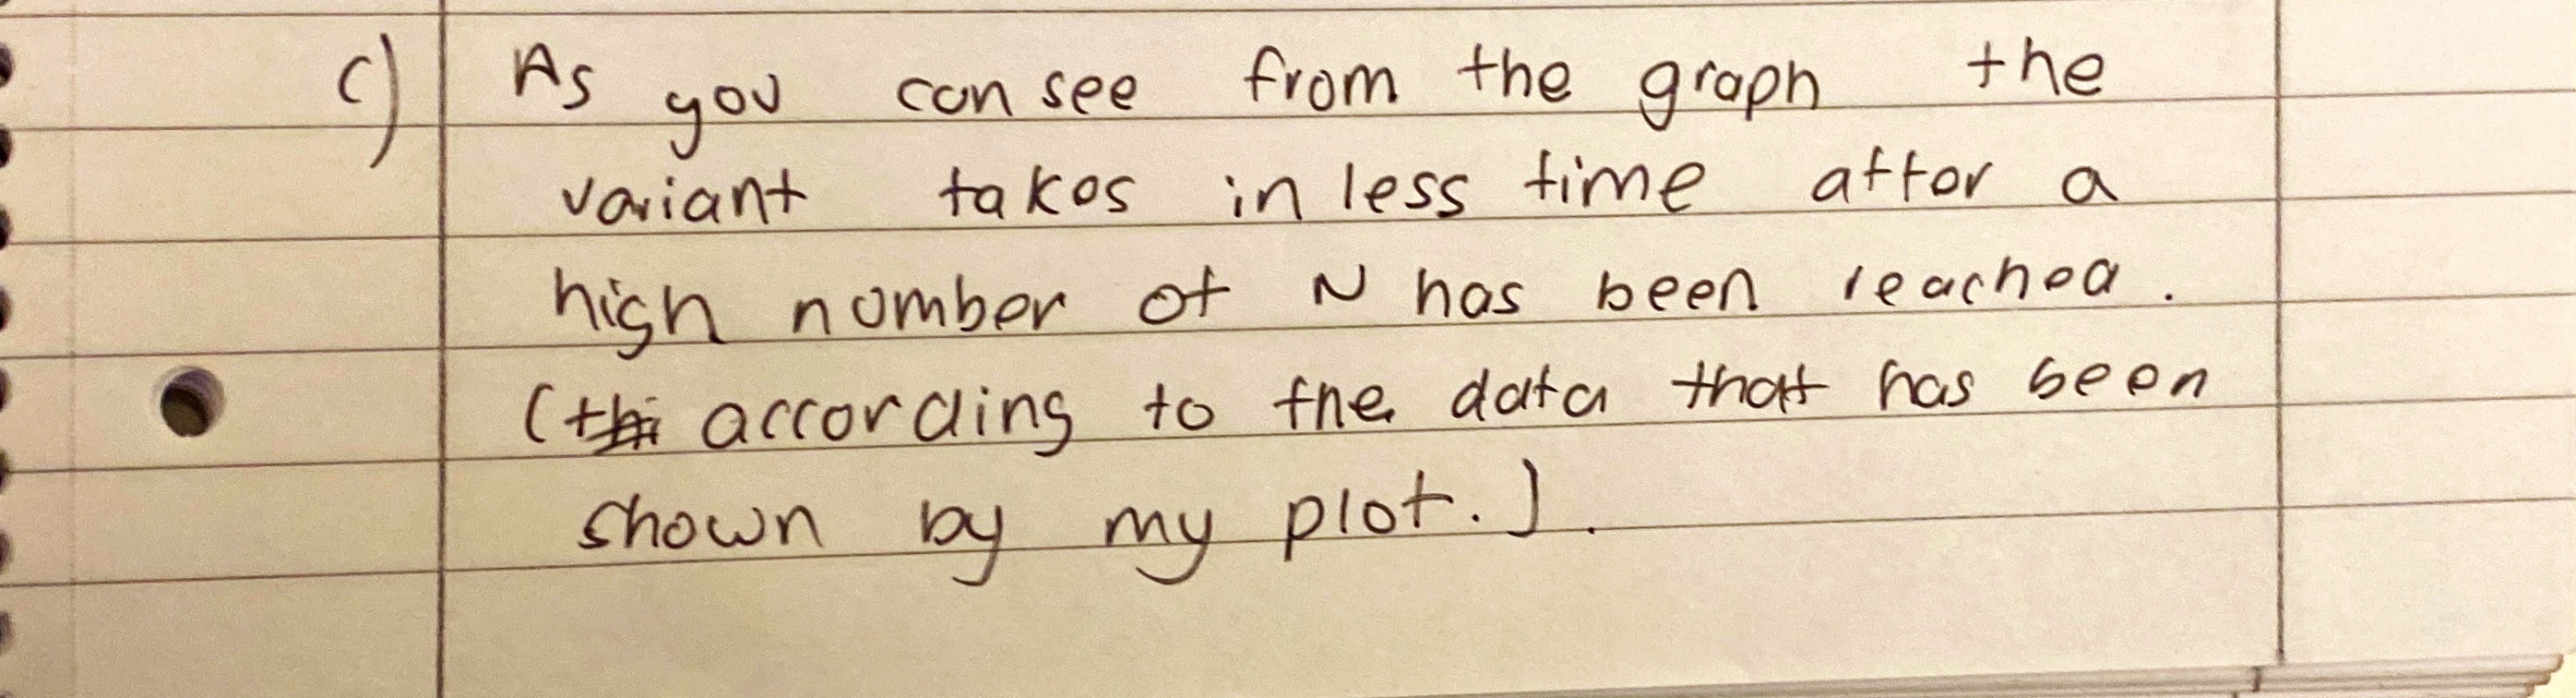 c) As you can see from the graph the
variant takes in less time after a
high number of N has been reached.
(according to the data that has been
shown by my plot.).